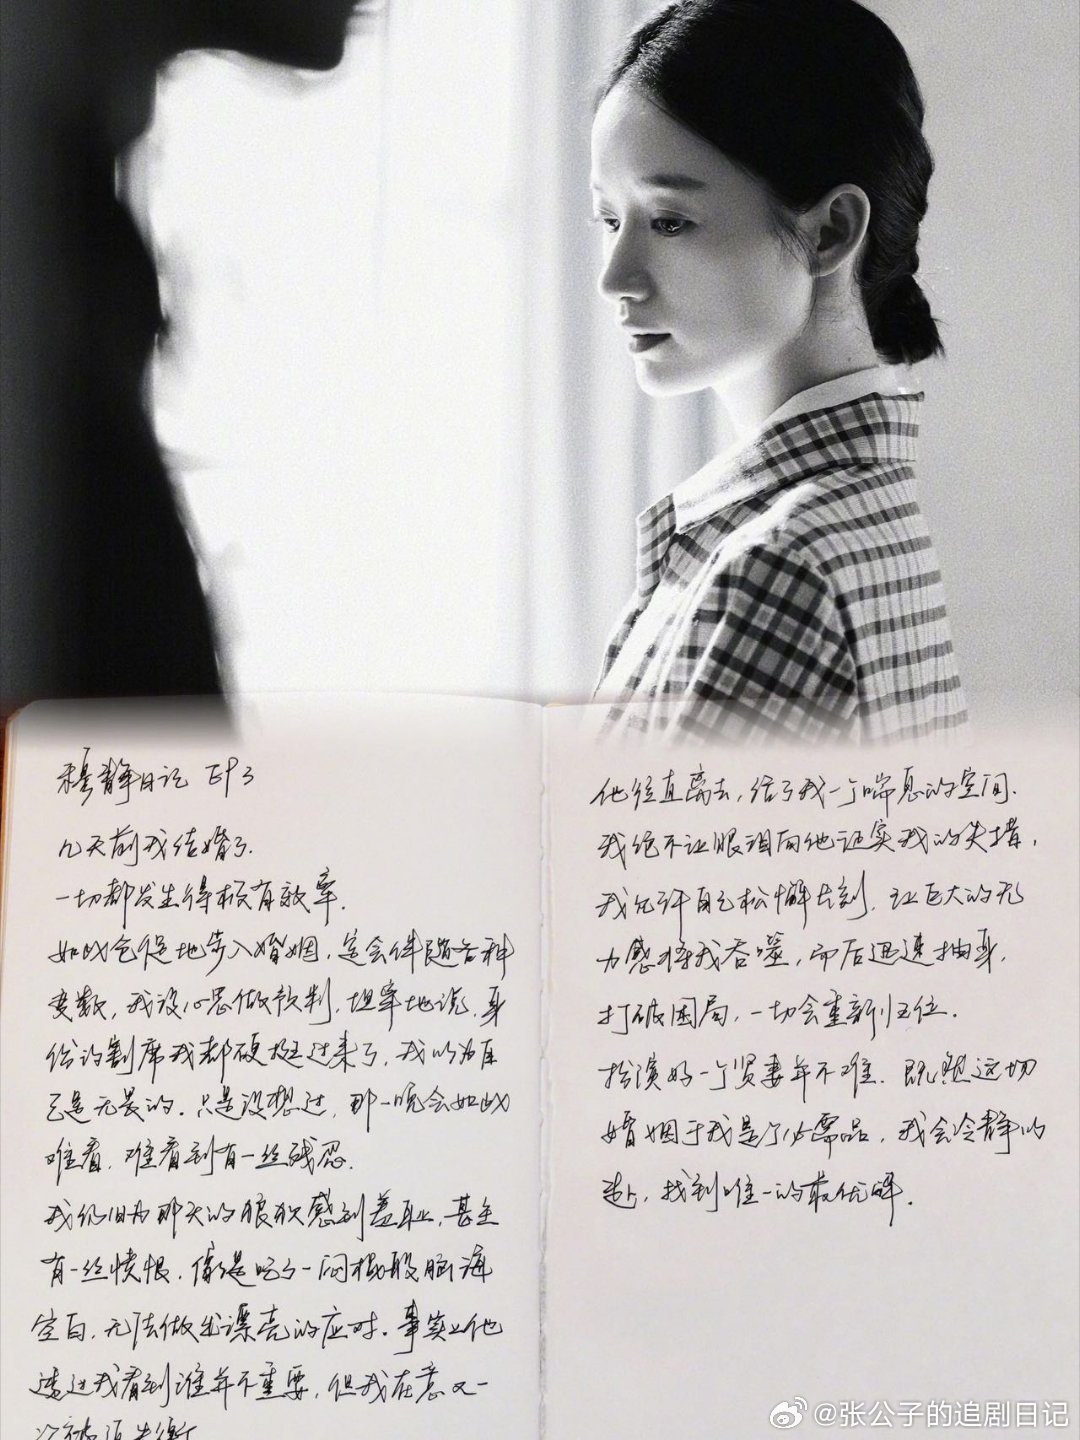 穆静日记 EP3
几天前我结婚了.
一切都发生得极有效率.
如此仓促地步入婚姻，定会伴随各种
变数，我没心思做预判，坦率地说，身
份的割席我都硬挺过来了，我以为自
己是无畏的。只是没想过，那一晚会如此
难看，难看到有一丝残忍.
我仍旧为那天的狼狈感到羞耻，甚至
有一丝愤恨，像是吃了一闷棍般脑海
空白，无法做出漂亮的应对。事实上他
透过我看到谁并不重要，但我在意又一
次被迫失衡
他径直离去，给了我一个喘息的空间.
我绝不让眼泪向他证实我的失措，
我允许自己松懈片刻，让巨大的无
力感将我吞噬，而后迅速抽身，
打破困局，一切会重新归位.
扮演好一个贤妻并不难，既然这场
婚姻于我是个必需品，我会冷静的
找到唯一的最优解.
@张公子的追剧日记